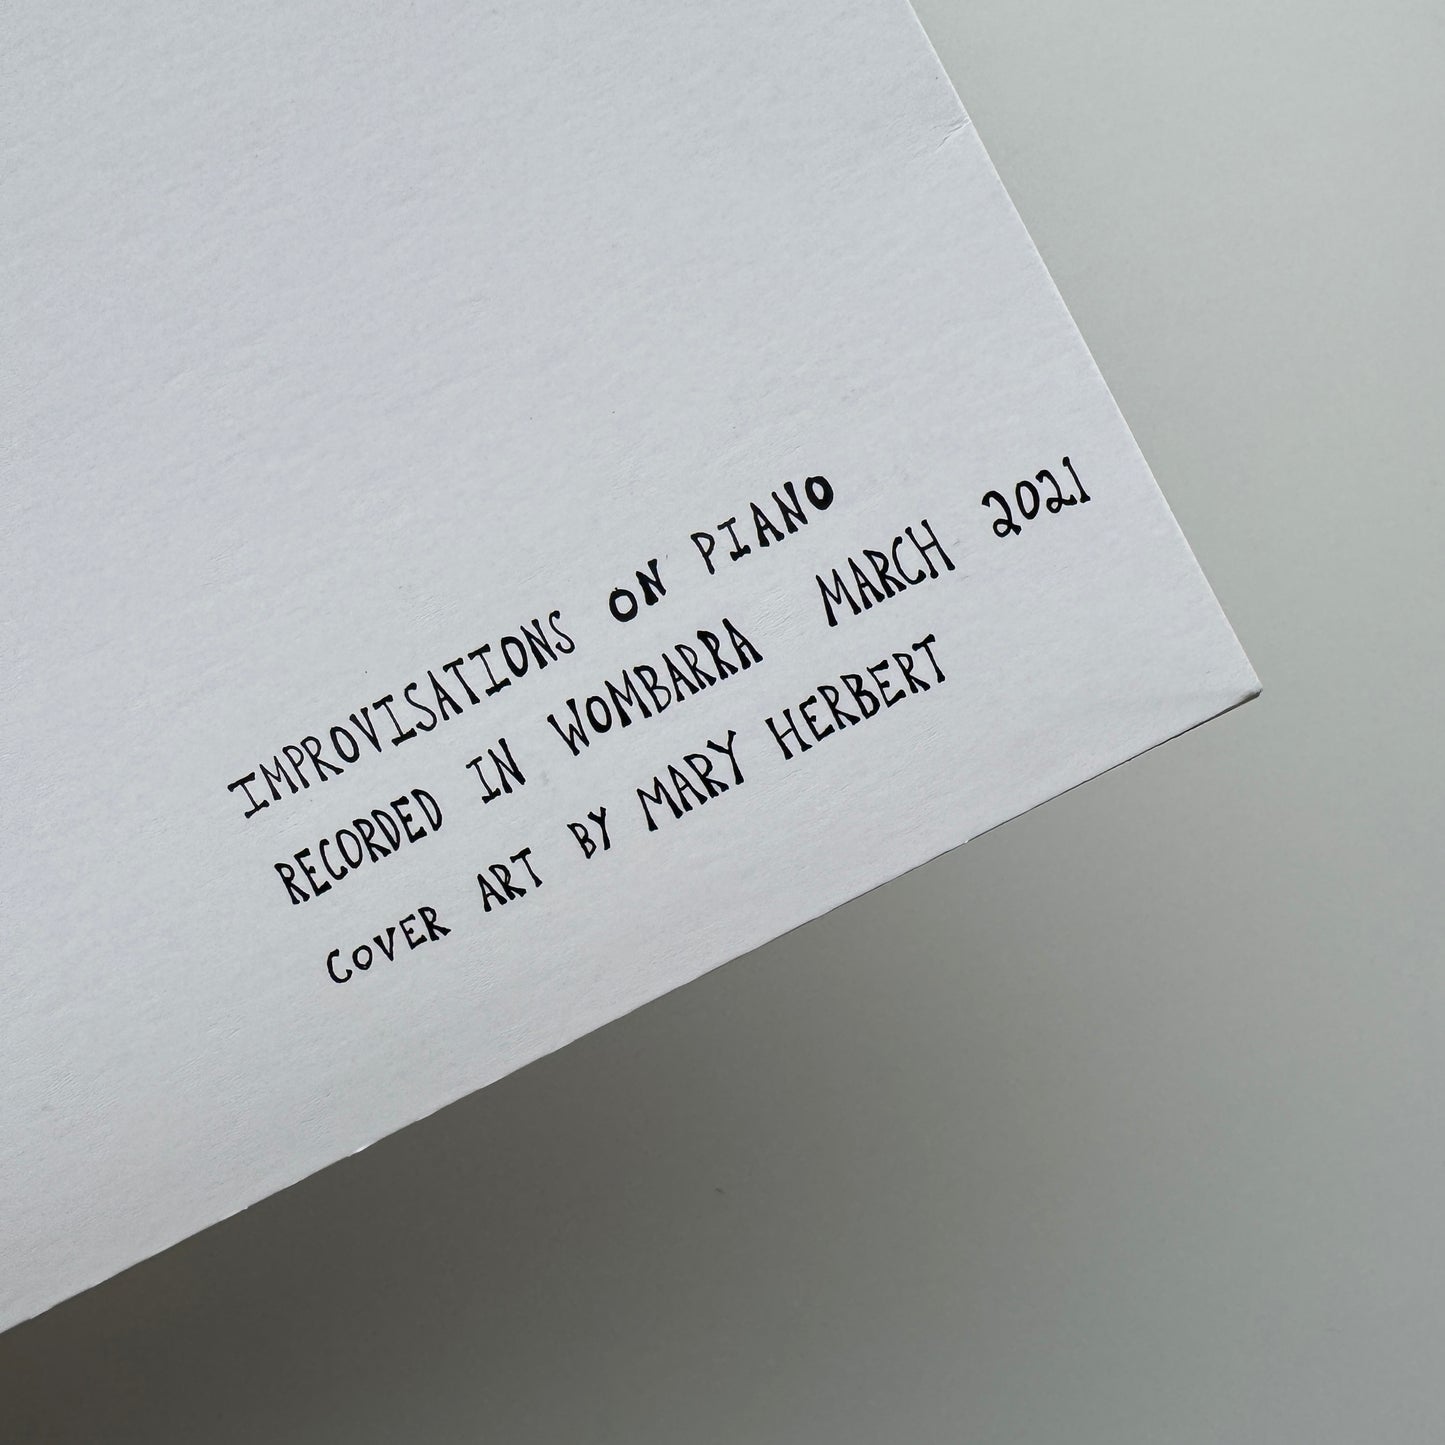 IMPROVISATIONS ON PIANO
RECORDED IN WOMBARRA MARCH 2021
COVER ART BY MARY HERBERT